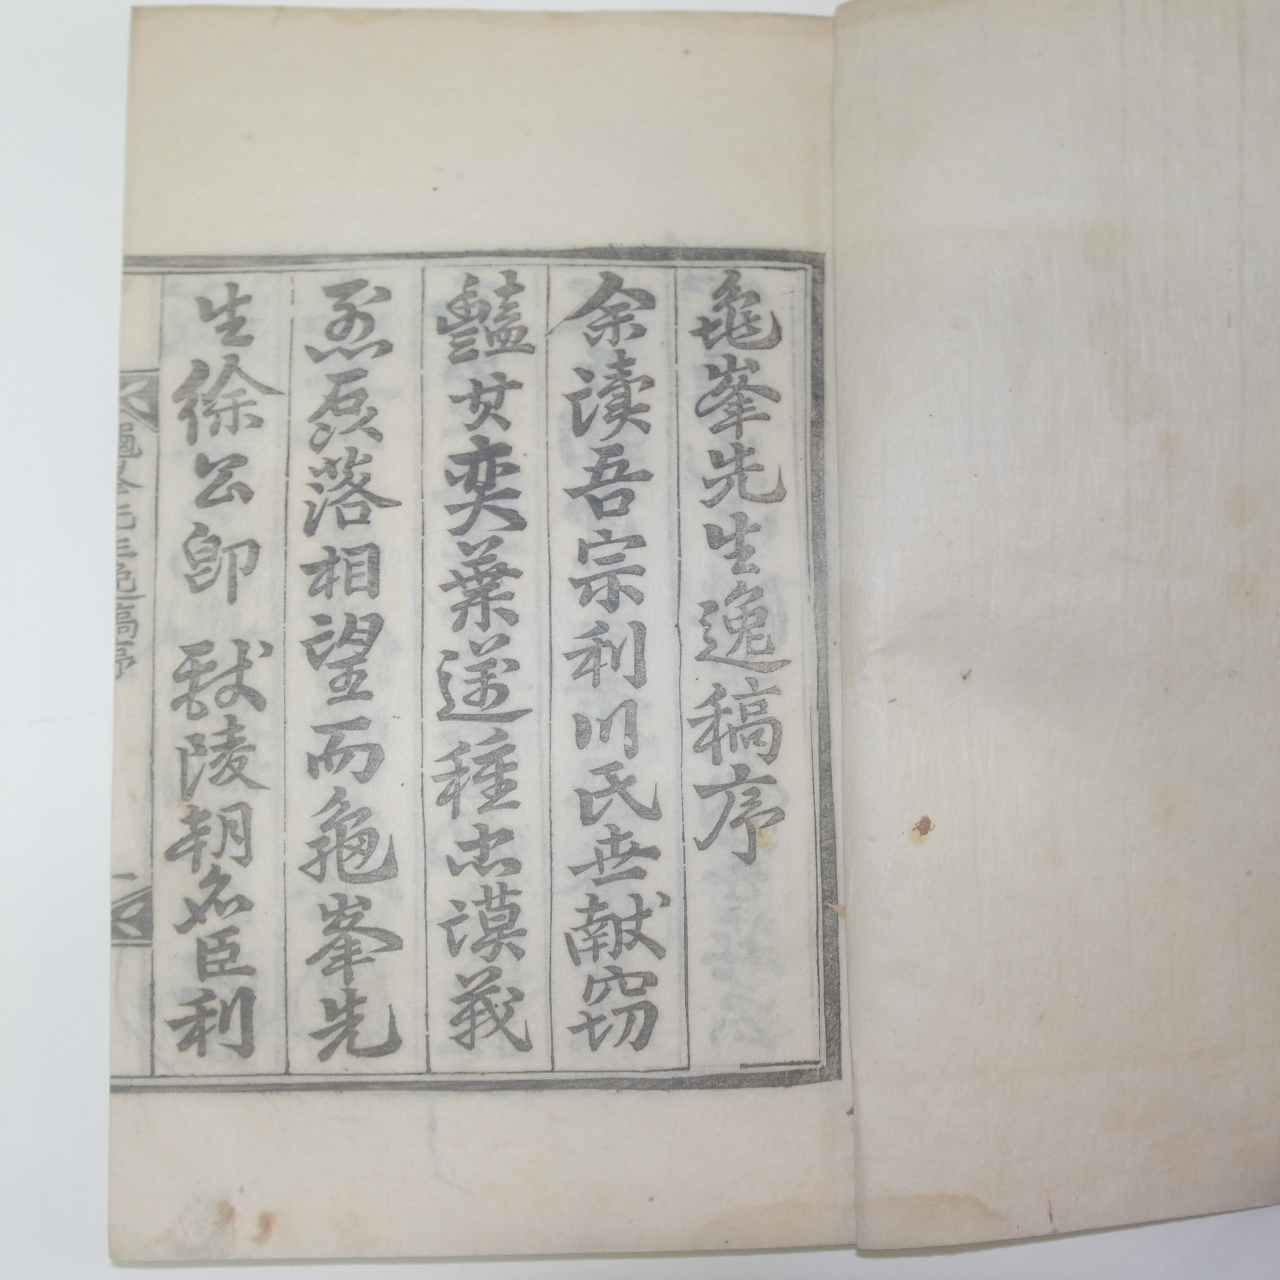 龜峯先生逸稿序
余讀吾宗利川氏世獻竊
艷其奕葉遞種忠謨義
烈磊落相望而龜峯先
生徐公卽 獻陵朝名臣利
龜峯先生逸稿序